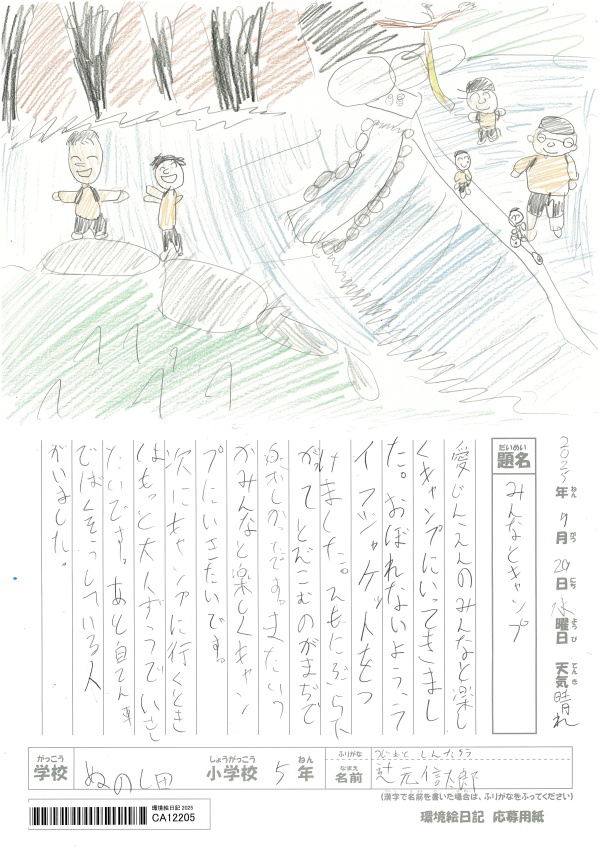 2025年 月 20日 水曜日 天気 晴れ
ねん がつ にち ようび てんき
だいめい
題名
みんなとキャンプ
愛じんえんのみんなと楽し
くキャンプにいってきまし
た。おぼれないよう、ラ
イフジャケットをつ
けました。ひもにぶら下
がってとびこむのがまぢで
楽しかったです。またいつ
かみんなと楽しくキャン
プにいきたいです。
次にキャンプに行くとき
はもっと大人ずうでいき
たいです。あと自てん車
でばくそうしている人
がいました。
がっこう
学校
ぬのし田
しょうがっこう
小学校
5
ねん
年
ふりがな
つじもと しんたろう
なまえ
名前
辻元信太郎
(漢字で名前を書いた場合は、ふりがなをふってください)
環境絵日記 2025
CA12205
環境絵日記 応募用紙